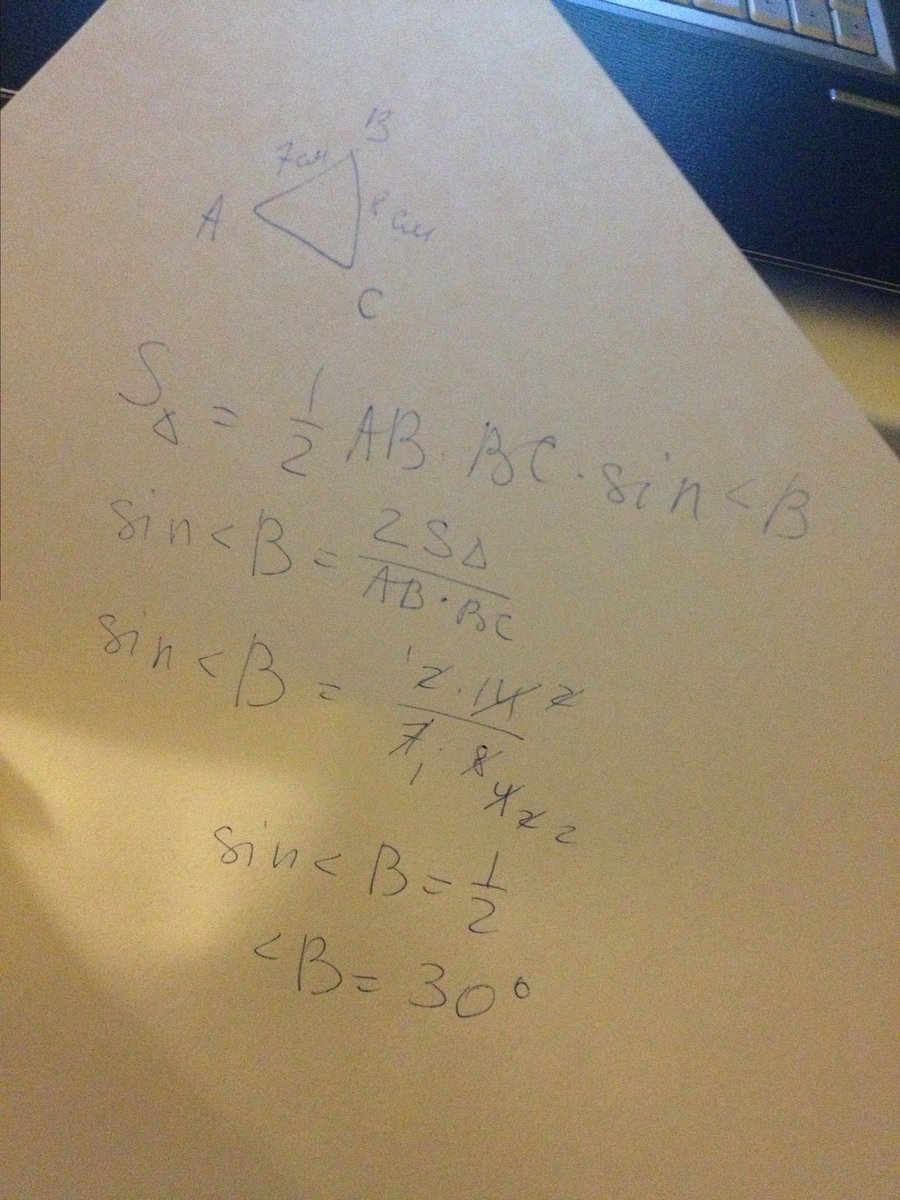 B
7см
A
8 см
C
S△ = 1/2 AB · BC · sin < B
sin < B = 2S△ / AB · BC
sin < B = 1 2 · 14 2 / 7 1 · 8 4 2 2
sin < B = 1/2
< B = 30°